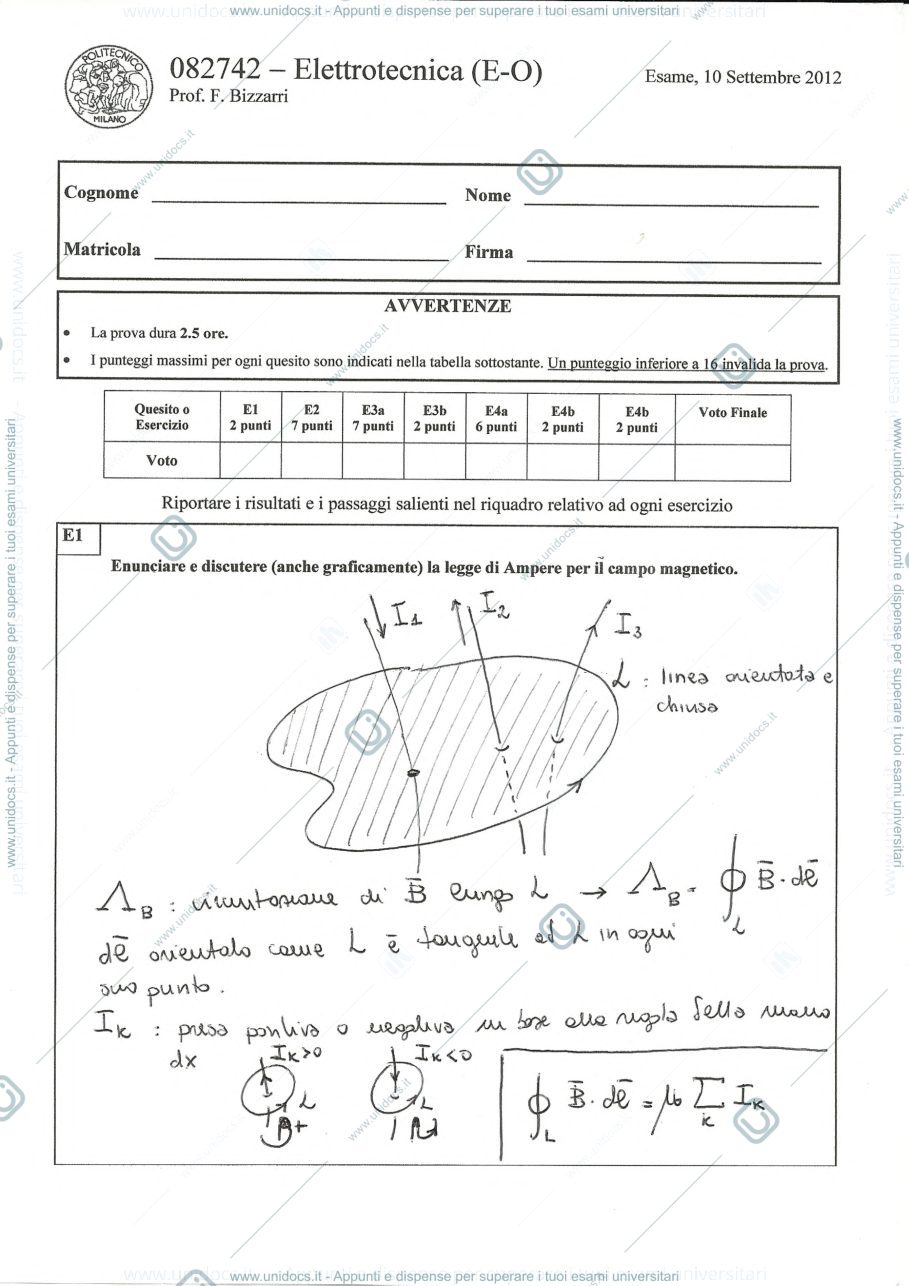 www.unidocs.it - Appunti e dispense per superare i tuoi esami universitari
POLITECNICO
MILANO
082742 – Elettrotecnica (E-O)
Prof. F. Bizzarri
Esame, 10 Settembre 2012
Cognome
Nome
Matricola
Firma
AVVERTENZE
• La prova dura 2.5 ore.
• I punteggi massimi per ogni quesito sono indicati nella tabella sottostante. Un punteggio inferiore a 16 invalida la prova.
Quesito o Esercizio E1 2 punti E2 7 punti E3a 7 punti E3b 2 punti E4a 6 punti E4b 2 punti E4b 2 punti Voto Finale
Voto
Riportare i risultati e i passaggi salienti nel riquadro relativo ad ogni esercizio
E1
Enunciare e discutere (anche graficamente) la legge di Ampere per il campo magnetico.
I1 I2 I3
L : linea orientata e
chiusa
ΛB : circuitazione di B̄ lungo L → ΛB = ∮L B̄ · dl̄
dl̄ orientato come L è tangente ad L in ogni
suo punto.
IK : presa positiva o negativa in base alla regola della mano
dx
IK>0 L
IK<0 L
∮L B̄ · dl̄ = μ0 ∑K IK
www.unidocs.it - Appunti e dispense per superare i tuoi esami universitari
www.unidocs.it - Appunti e dispense per superare i tuoi esami universitari
www.unidocs.it - Appunti e dispense per superare i tuoi esami universitari